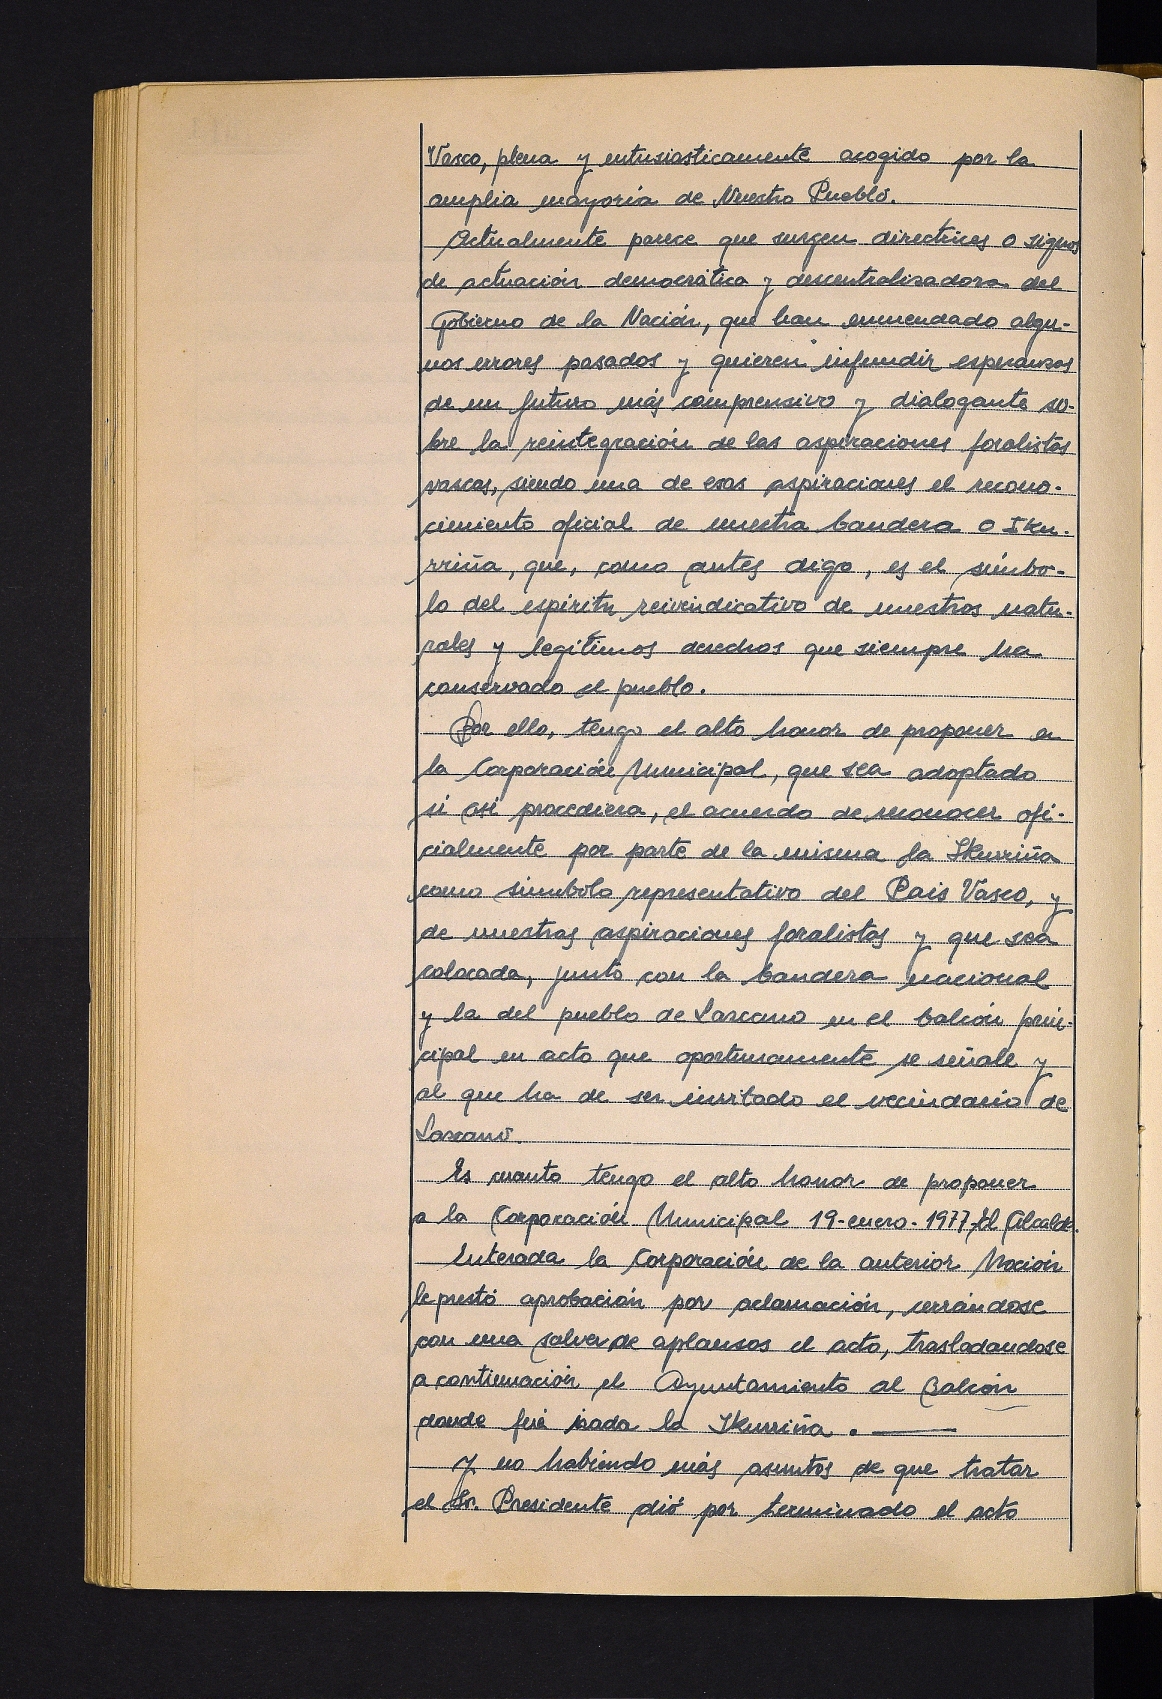 Vasco, plena y entusiasticamente acogido por la
amplia mayoría de Nuestro Pueblo.
Actualmente parece que surgen directrices o signos
de actuación democrática y descentralizadora del
Gobierno de la Nación, que han enmendado algu-
nos errores pasados y quieren infundir esperanzas
de un futuro más comprensivo y dialogante so-
bre la reintegración de las aspiraciones foralistas
vascas, siendo una de esas aspiraciones el recono-
cimiento oficial de nuestra bandera o Iku-
rriña, que, como antes digo, es el símbo-
lo del espíritu reivindicativo de nuestros natu-
rales y legítimos derechos que siempre ha
conservado el pueblo.
Por ello, tengo el alto honor de proponer en
la Corporación Municipal, que sea adoptado
si asi procediera, el acuerdo de reconocer ofi-
cialmente por parte de la misma la Ikurriña
como símbolo representativo del Pais Vasco, y
de nuestras aspiraciones foralistas y que sea
colocada, junto con la bandera nacional
y la del pueblo de Lazcano en el balcón prin-
cipal en acto que oportunamente se señale y
al que ha de ser invitado el vecindario de
Lazcano.
Es cuanto tengo el alto honor de proponer
a la Corporación Municipal 19-enero-1977-El Alcalde.
Enterada la Corporación de la anterior Moción
le prestó aprobación por aclamación, cerrándose
con una salva de aplausos el acto, trasladandose
a continuación el Ayuntamiento al Balcón
donde fué izada la Ikurriña. —
Y no habiendo más asuntos de que tratar
el Sr. Presidente dió por terminado el acto